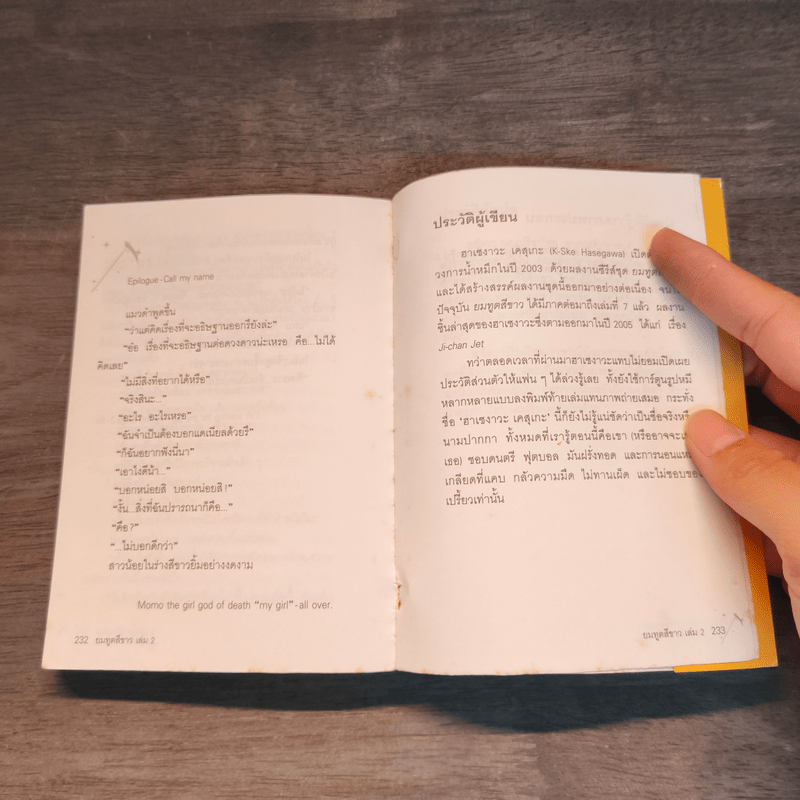 Epilogue-Call my name
แมวดำพูดขึ้น
“ว่าแต่คิดเรื่องที่จะอธิษฐานออกรึยังล่ะ”
“อ๋อ เรื่องที่จะอธิษฐานต่อดวงดาวน่ะเหรอ คือ...ไม่ได้
คิดเลย”
“ไม่มีสิ่งที่อยากได้หรือ”
“จริงสินะ...”
“อะไร อะไรเหรอ”
“ฉันจำเป็นต้องบอกแดเนียลด้วยรึ”
“ก็ฉันอยากฟังนี่นา”
“เอาไงดีน้า...”
“บอกหน่อยสิ บอกหน่อยสิ!”
“งั้น...สิ่งที่ฉันปรารถนาก็คือ...”
“คือ?”
“...ไม่บอกดีกว่า”
สาวน้อยในร่างสีขาวยิ้มอย่างงดงาม
Momo the girl god of death “my girl”-all over.
232 ยมทูตสีขาว เล่ม 2
ประวัติผู้เขียน
ฮาเซงาวะ เคสุเกะ (K-Ske Hasegawa) เปิดตั
วงการน้ำหมึกในปี 2003 ด้วยผลงานซีรีส์ชุด ยมทูต
และได้สร้างสรรค์ผลงานชุดนี้ออกมาอย่างต่อเนื่อง จน
ปัจจุบัน ยมทูตสีขาว ได้มีภาคต่อมาถึงเล่มที่ 7 แล้ว ผลงาน
ชิ้นล่าสุดของฮาเซงาวะซึ่งตามออกมาในปี 2005 ได้แก่ เรื่อง
Ji-chan Jet
ทว่าตลอดเวลาที่ผ่านมาฮาเซงาวะแทบไม่ยอมเปิดเผย
ประวัติส่วนตัวให้แฟน ๆ ได้ล่วงรู้เลย ทั้งยังใช้การ์ตูนรูปหมี
หลากหลายแบบลงพิมพ์ท้ายเล่มแทนภาพถ่ายเสมอ กระทั่ง
ชื่อ ‘ฮาเซงาวะ เคสุเกะ’ นี้ก็ยังไม่รู้แน่ชัดว่าเป็นชื่อจริงหรื
นามปากกา ทั้งหมดที่เรารู้ตอนนี้คือเขา (หรืออาจจะเ
เธอ) ชอบดนตรี ฟุตบอล มันฝรั่งทอด และการนอน
เกลียดที่แคบ กลัวความมืด ไม่ทานเผ็ด และไม่ชอบขอ
เปรี้ยวเท่านั้น
ยมทูตสีขาว เล่ม 2 233